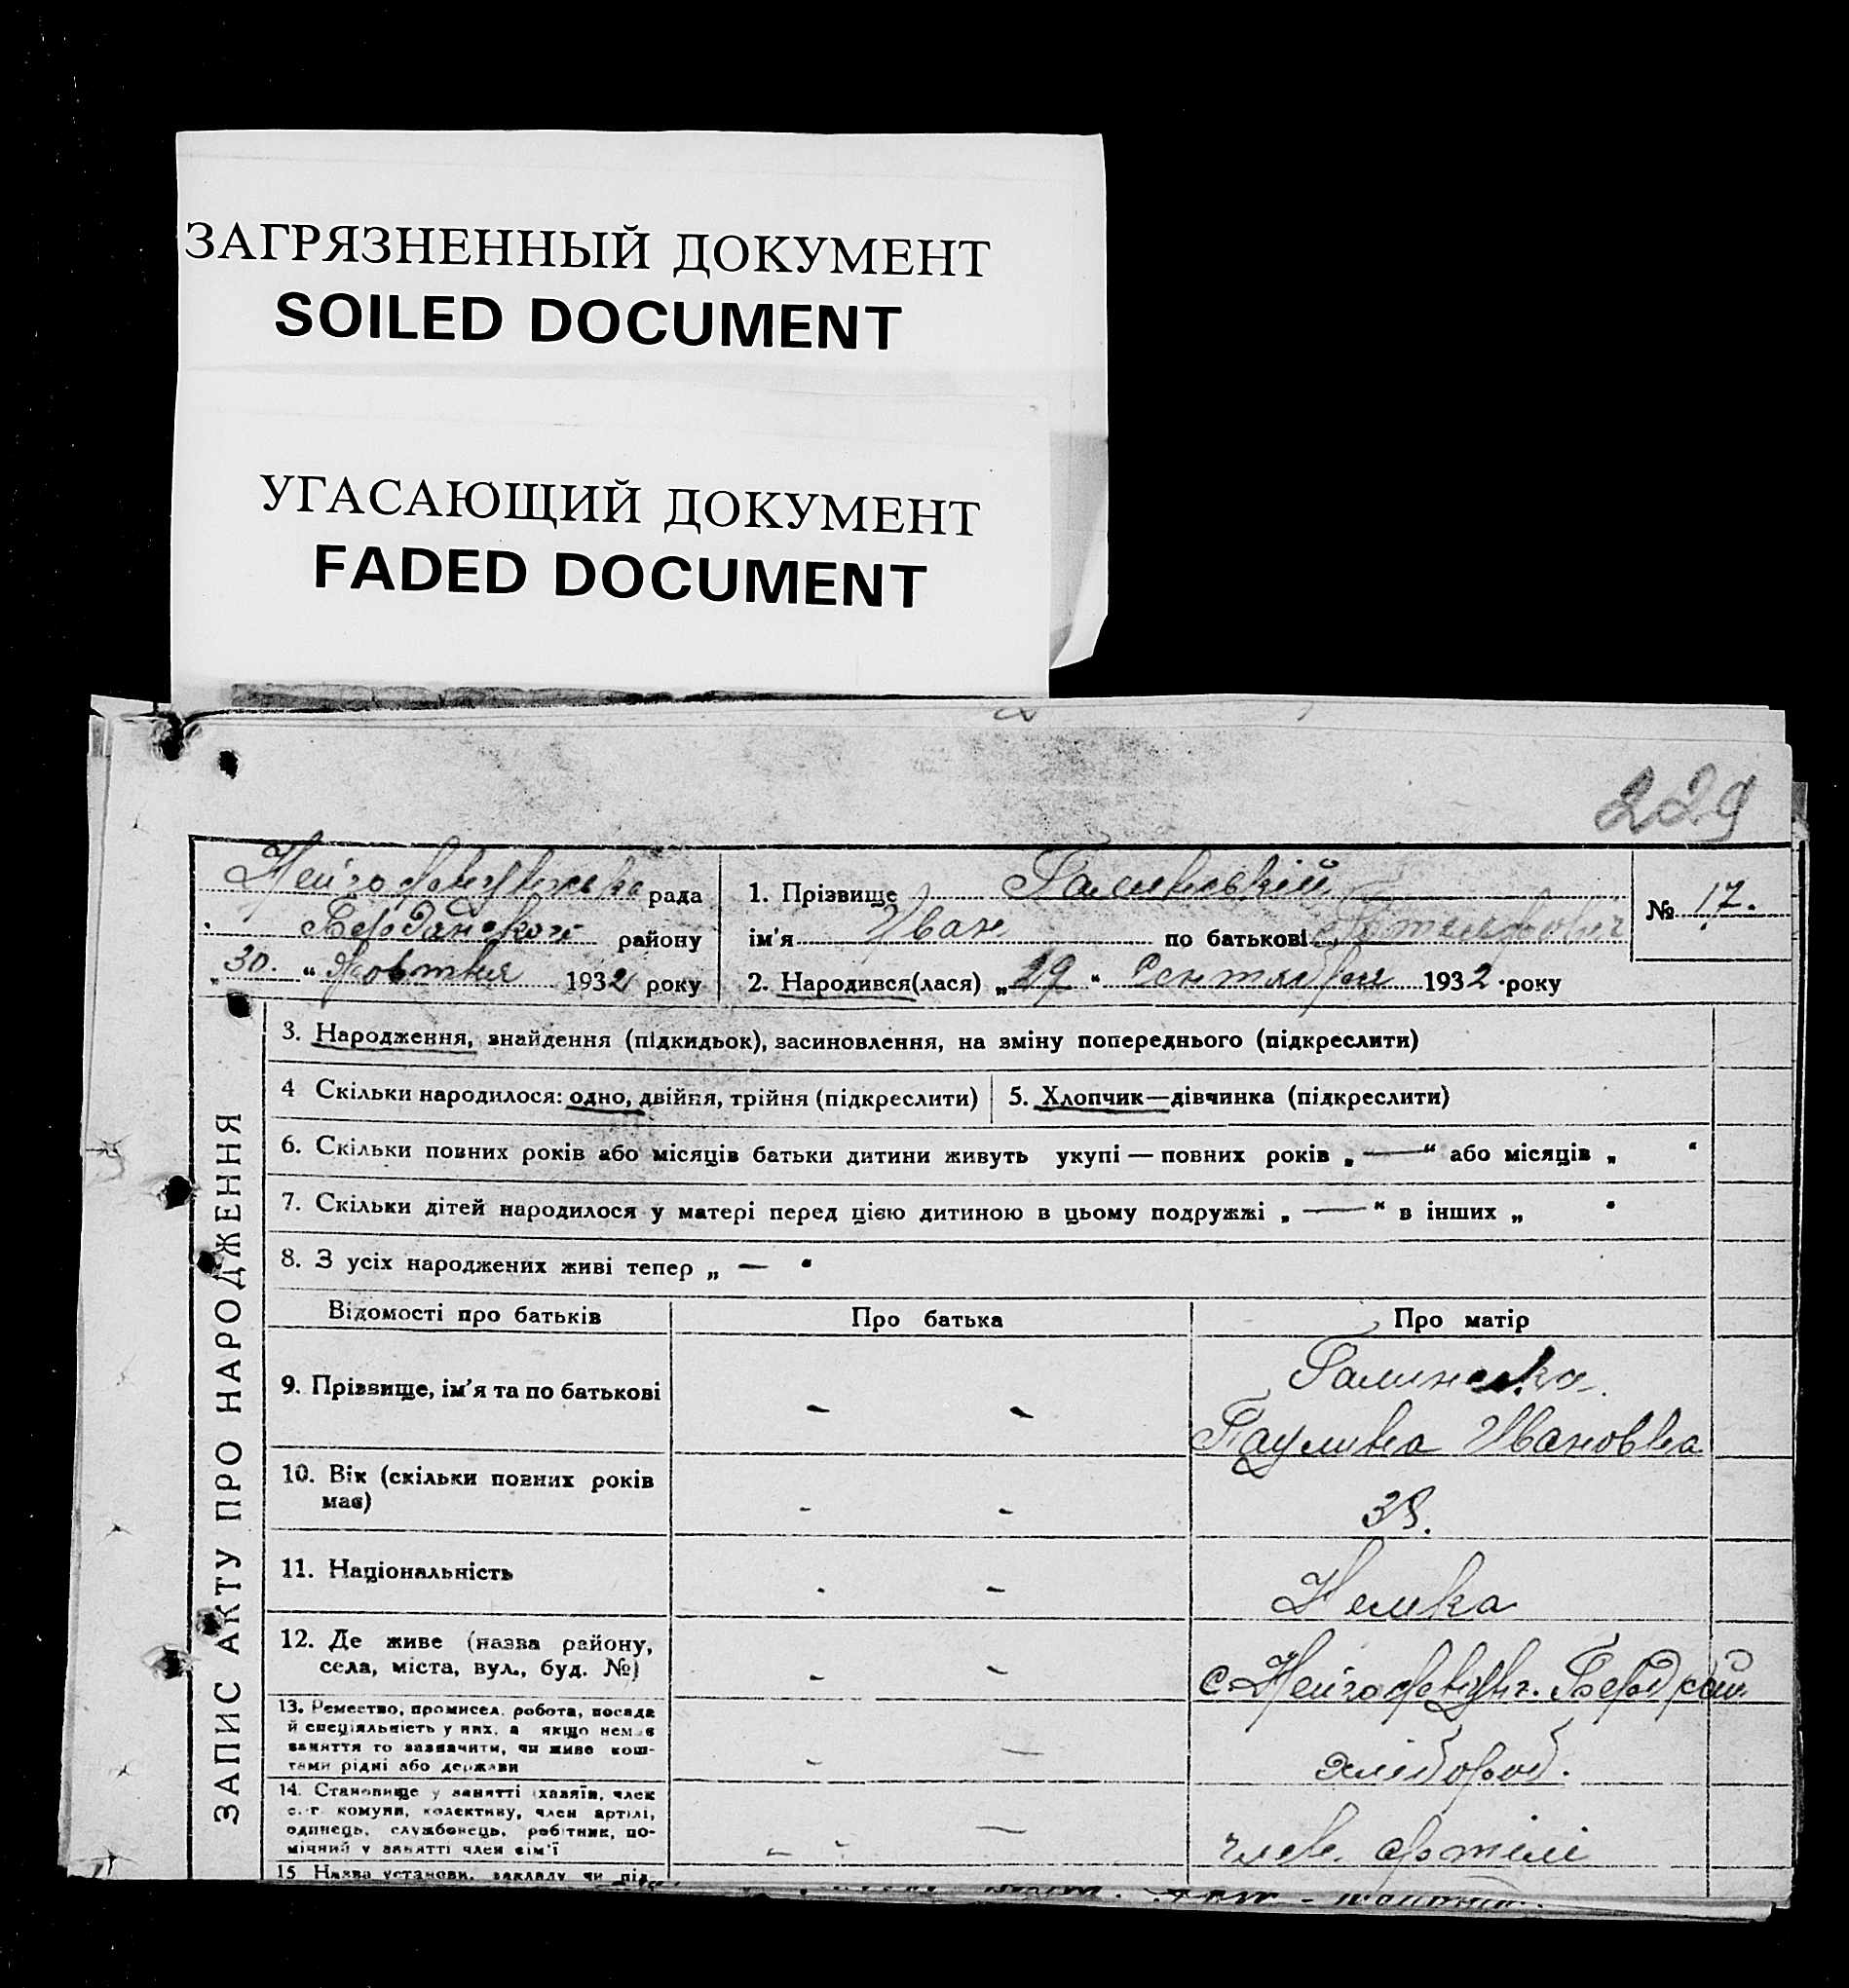 ЗАГРЯЗНЕННЫЙ ДОКУМЕНТ
SOILED DOCUMENT
УГАСАЮЩИЙ ДОКУМЕНТ
FADED DOCUMENT
229
рада
Бердянского району
„30.“ Жовтня 1932 року
1. Прізвище
ім’я Иван по батькові
2. Народився(лася) „29“ Сентября 1932 року
№ 17.
ЗАПИС АКТУ ПРО НАРОДЖЕННЯ
3. Народження, знайдення (підкидьок), засиновлення, на зміну попереднього (підкреслити)
4 Скільки народилося: одно, двійня, трійня (підкреслити)
5. Хлопчик—дівчинка (підкреслити)
6. Скільки повних років або місяців батьки дитини живуть укупі — повних років „—“ або місяців „ “
7. Скільки дітей народилося у матері перед цією дитиною в цьому подружжі „—“ в інших „ “
8. З усіх народжених живі тепер „ — “
Відомості про батьків Про батька Про матір
9. Прізвище, ім’я та по батькові - -
Паулина Ивановна
10. Вік (скільки повних років
має) - -
11. Національність - - Немка
12. Де живе (назва району,
села, міста, вул., буд. №) - -
13. Ремество, промисел, робота, посада
й спеціяльність у них, а якщо немає
заняття то зазначити, чи живе кош-
тами рідні або держави - — хлібороб.
14. Становище у занятті (хазяїн, член
с.-г. комуни, колективу, член артілі,
одинець, службовець, робітник, по-
мічний у занятті член сім’ї - - — член. артілі
15 Назва установи, закладу чи під-